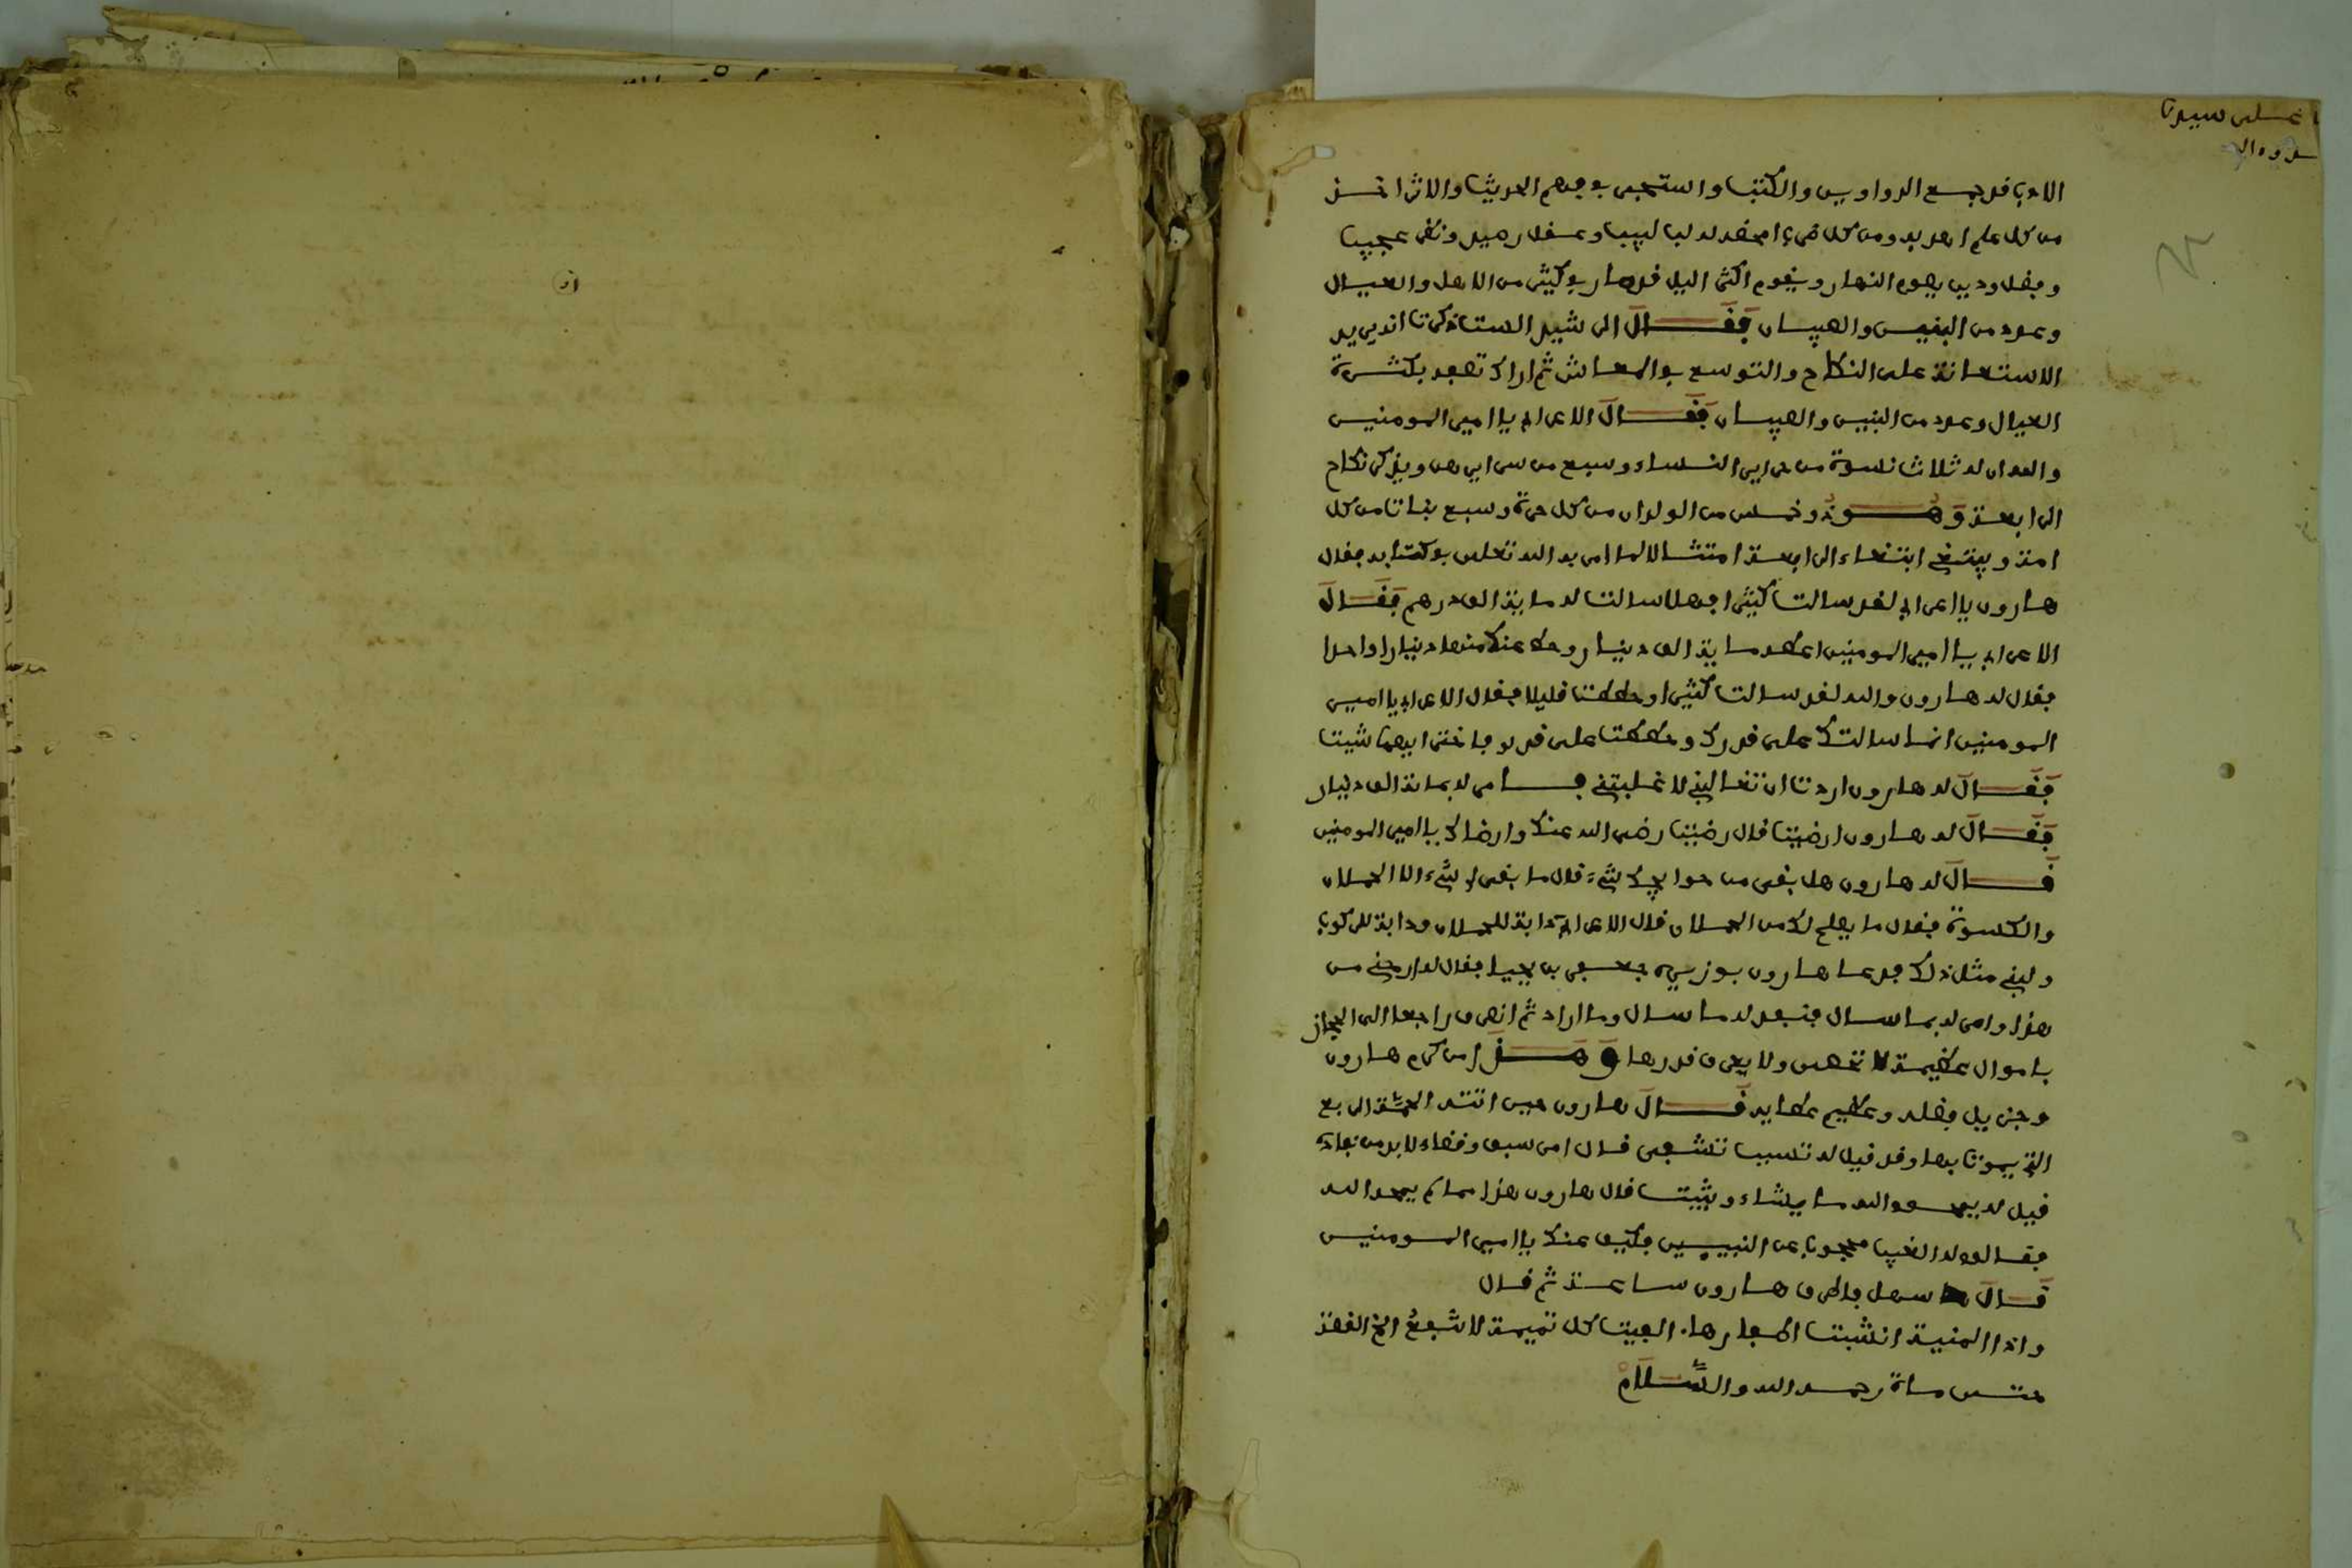 الادب قد جمع الدواوين والكتب واستجمع بوجهم الحديث والاثر اخذ
من كل علم اهدبه ومن كل شيء احفده له لب لبيب وعقل رصين ونظر عجيب
وفضل ودين يصوم النهار ويقوم اكثر اليل قد صار في كثير من الاهل والعيال
وعدد من البنين والصبيان فقال الرشيد الست تذكر انه يريد
الاستعانة على النكاح والتوسع في المعاش ثم اراك تصفه بكثرة
العيال وعدد من البنين والصبيان فقال الاعرابي يا امير المومنين
والله ان له ثلاث نسوة من حراير النساء وسبع من سرايرهن ويذكر نكاح
الرابعة وهو ذو خمس من الولدان من كل حرة وسبع بنات من كل
امة ويبتغي ابتغاء الرابعة امتثالا لما امر به الله تعلى في كتابه فقال
هارون يا اعرابي لقد سالت كثيرا فهلا سالت له ماية الف درهم فقال
الاعرابي يا امير المومنين اعطه ماية الف دينار وحط عنك منها دينارا واحدا
فقال له هارون والله لقد سالت كثيرا وحططت قليلا فقال الاعرابي يا امير
المومنين انما سالتك على قدرك وحططت على قدري فاختر ايهما شيت
فقال له هارون اردت ان تغالبني لا غلبتني فامر له بماية الف دينار
فقال له هارون ارضيت قال رضيت رضي الله عنك وارضاك يا امير المومنين
قال له هارون هل بقى من حوايجك شيء قال ما بقى لي شيء الا الحملان
والكسوة فقال ما يصلح لك من الحملان قال الاعرابي دابة للحملان ودابة للركوب
ولبني مثل ذلك فدعا هارون بوزيره جعفر بن يحيا فقال له ارحني من
هذا وامر له بما سال فنفد له ما سال وما اراد ثم انصرف راجعا الى الحجاز
باموال عظيمة لا تحصى ولا يعرف قدرها وهذا من كرم هارون
وجزيل فضله وعظيم عطايه قال هارون حين اتته الحمة الربع
التي يموت بها وقد قيل له تسبب تتشفى قال امر سبق وقضاء لا بد من نفاذه
قيل له يمحو الله ما يشاء ويثبت قال هارون هذا مما لم يمحه الله
فقالوا له الغيب محجوب عن النبيين فكيف عنك يا امير المومنين
قال سهل فاطرق هارون ساعة ثم قال
واذا المنية انشبت اظفارها، الفيت كل تميمة لا تنفع انتهى القصة
حتى مات رحمه الله والسلام